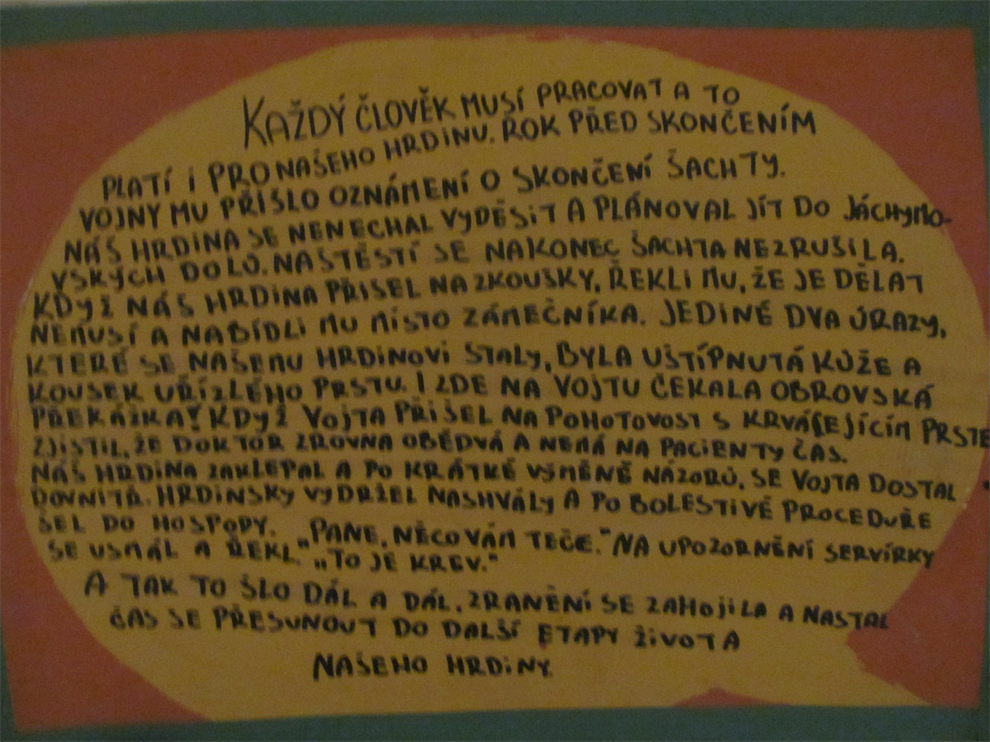 KAŽDÝ ČLOVĚK MUSÍ PRACOVAT A TO
PLATÍ I PRO NAŠEHO HRDINU. ROK PŘED SKONČENÍM
VOJNY MU PŘIŠLO OZNÁMENÍ O SKONČENÍ ŠACHTY.
NÁŠ HRDINA SE NENECHAL VYDĚSIT A PLÁNOVAL JÍT DO JÁCHYMO-
VSKÝCH DOLŮ. NAŠTĚSTÍ SE NAKONEC ŠACHTA NEZRUŠILA.
KDYŽ NÁŠ HRDINA PŘIŠEL NA ZKOUŠKY, ŘEKLI MU, ŽE JE DĚLAT
NEMUSÍ A NABÍDLI MU MÍSTO ZÁMEČNÍKA. JEDINÉ DVA ÚRAZY,
KTERÉ SE NAŠEMU HRDINOVI STALY, BYLA UŠTÍPNUTÁ KŮŽE A
KOUSEK UŘÍZLÉHO PRSTU. I ZDE NA VOJTU ČEKALA OBROVSKÁ
PŘEKÁŽKA! KDYŽ VOJTA PŘIŠEL NA POHOTOVOST S KRVÁCEJÍCÍM PRSTE
ZJISTIL, ŽE DOKTOR ZROVNA OBĚDVÁ A NEMÁ NA PACIENTY ČAS.
NÁŠ HRDINA ZAKLEPAL A PO KRÁTKÉ VÝMĚNĚ NÁZORŮ, SE VOJTA DOSTAL
DOVNITŘ. HRDINSKY VYDRŽEL NASHVÁLY A PO BOLESTIVÉ PROCEDUŘE
ŠEL DO HOSPODY. „PANE, NĚCO VÁM TEČE." NA UPOZORNĚNÍ SERVÍRKY
SE USMÁL A ŘEKL „TO JE KREV."
A TAK TO ŠLO DÁL A DÁL. ZRANĚNÍ SE ZAHOJILA A NASTAL
ČAS SE PŘESUNOUT DO DALŠÍ ETAPY ŽIVOTA
NAŠEHO HRDINY.